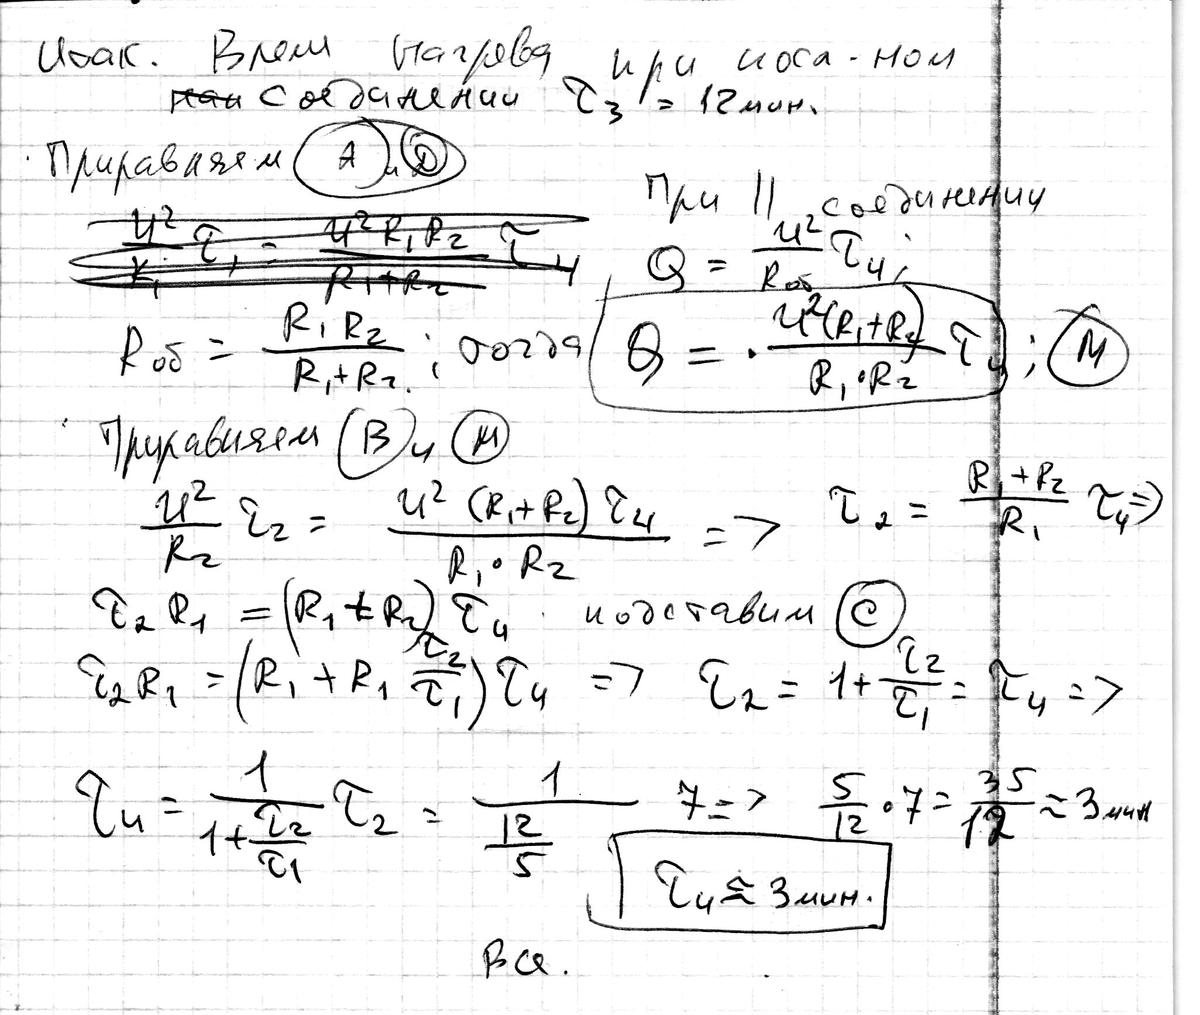 Итак. Время нагрева при посл-ном
соединении τ₃ = 12 мин.
Приравняем (A) и (D)
При || соединении
U²/R₁ τ₁ = U² R₁ R₂/(R₁+R₂) τ₄
Q = U²/Rоб τ₄;
Rоб = R₁ R₂/(R₁+R₂); тогда Q = U²(R₁+R₂)/(R₁·R₂) τ₄; (M)
Приравняем (B) и (M)
U²/R₂ τ₂ = U² (R₁+R₂) τ₄/(R₁·R₂) => τ₂ = (R₁+R₂)/R₁ τ₄ =>
τ₂ R₁ = (R₁+R₂) τ₄ подставим (C)
τ₂ R₁ = (R₁ + R₁ τ₂/τ₁) τ₄ => τ₂ = 1 + τ₂/τ₁ = τ₄ =>
τ₄ = 1/(1+τ₂/τ₁) τ₂ = 1/(12/5) 7 => 5/12 · 7 = 35/12 ≈ 3 мин
τ₄ ≈ 3 мин.
Все.